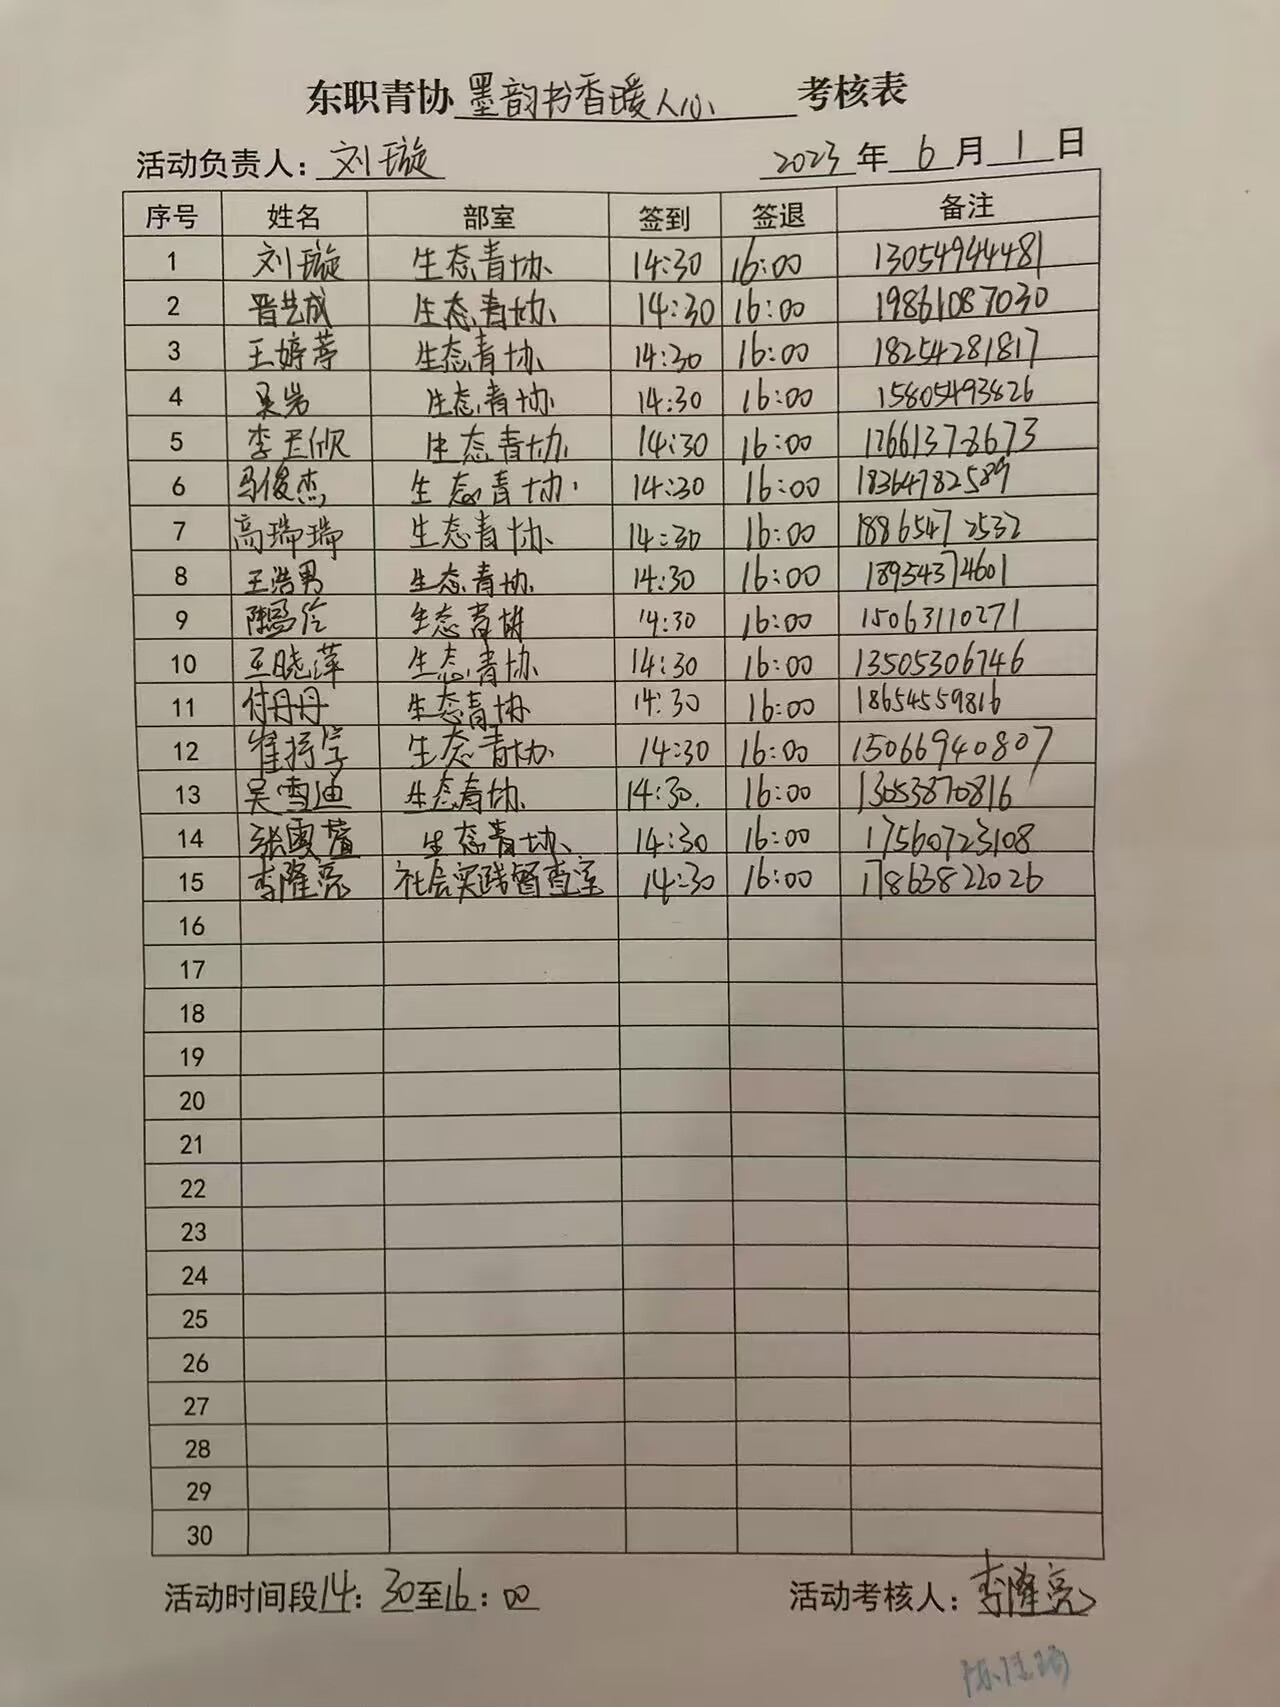 东职青协墨韵书香暖人心考核表
活动负责人：刘璇 2023年6月1日
序号 姓名 部室 签到 签退 备注
1 刘璇 生态青协 14:30 16:00 13054944481
2 晋艺成 生态青协 14:30 16:00 19861087030
3 王婷 生态青协 14:30 16:00 18254281817
4 吴岩 生态青协 14:30 16:00 15805493826
5 李 欣 生态青协 14:30 16:00 17661378673
6 马俊杰 生态青协 14:30 16:00 18364782589
7 高瑞瑞 生态青协 14:30 16:00 18865472532
8 王浩男 生态青协 14:30 16:00 18954374601
9 生态青协 14:30 16:00 15063110271
10 王晓萍 生态青协 14:30 16:00 13505306746
11 付丹丹 生态青协 14:30 16:00 18654559816
12 崔 宇 生态青协 14:30 16:00 15066940807
13 吴雪迪 生态青协 14:30. 16:00 13053870816
14 生态青协 14:30 16:00 17560723108
15 李隆亮 社会实践督查室 14:30 16:00 17863822026
16
17
18
19
20
21
22
23
24
25
26
27
28
29
30
活动时间段14：30至16：00 活动考核人：李隆亮